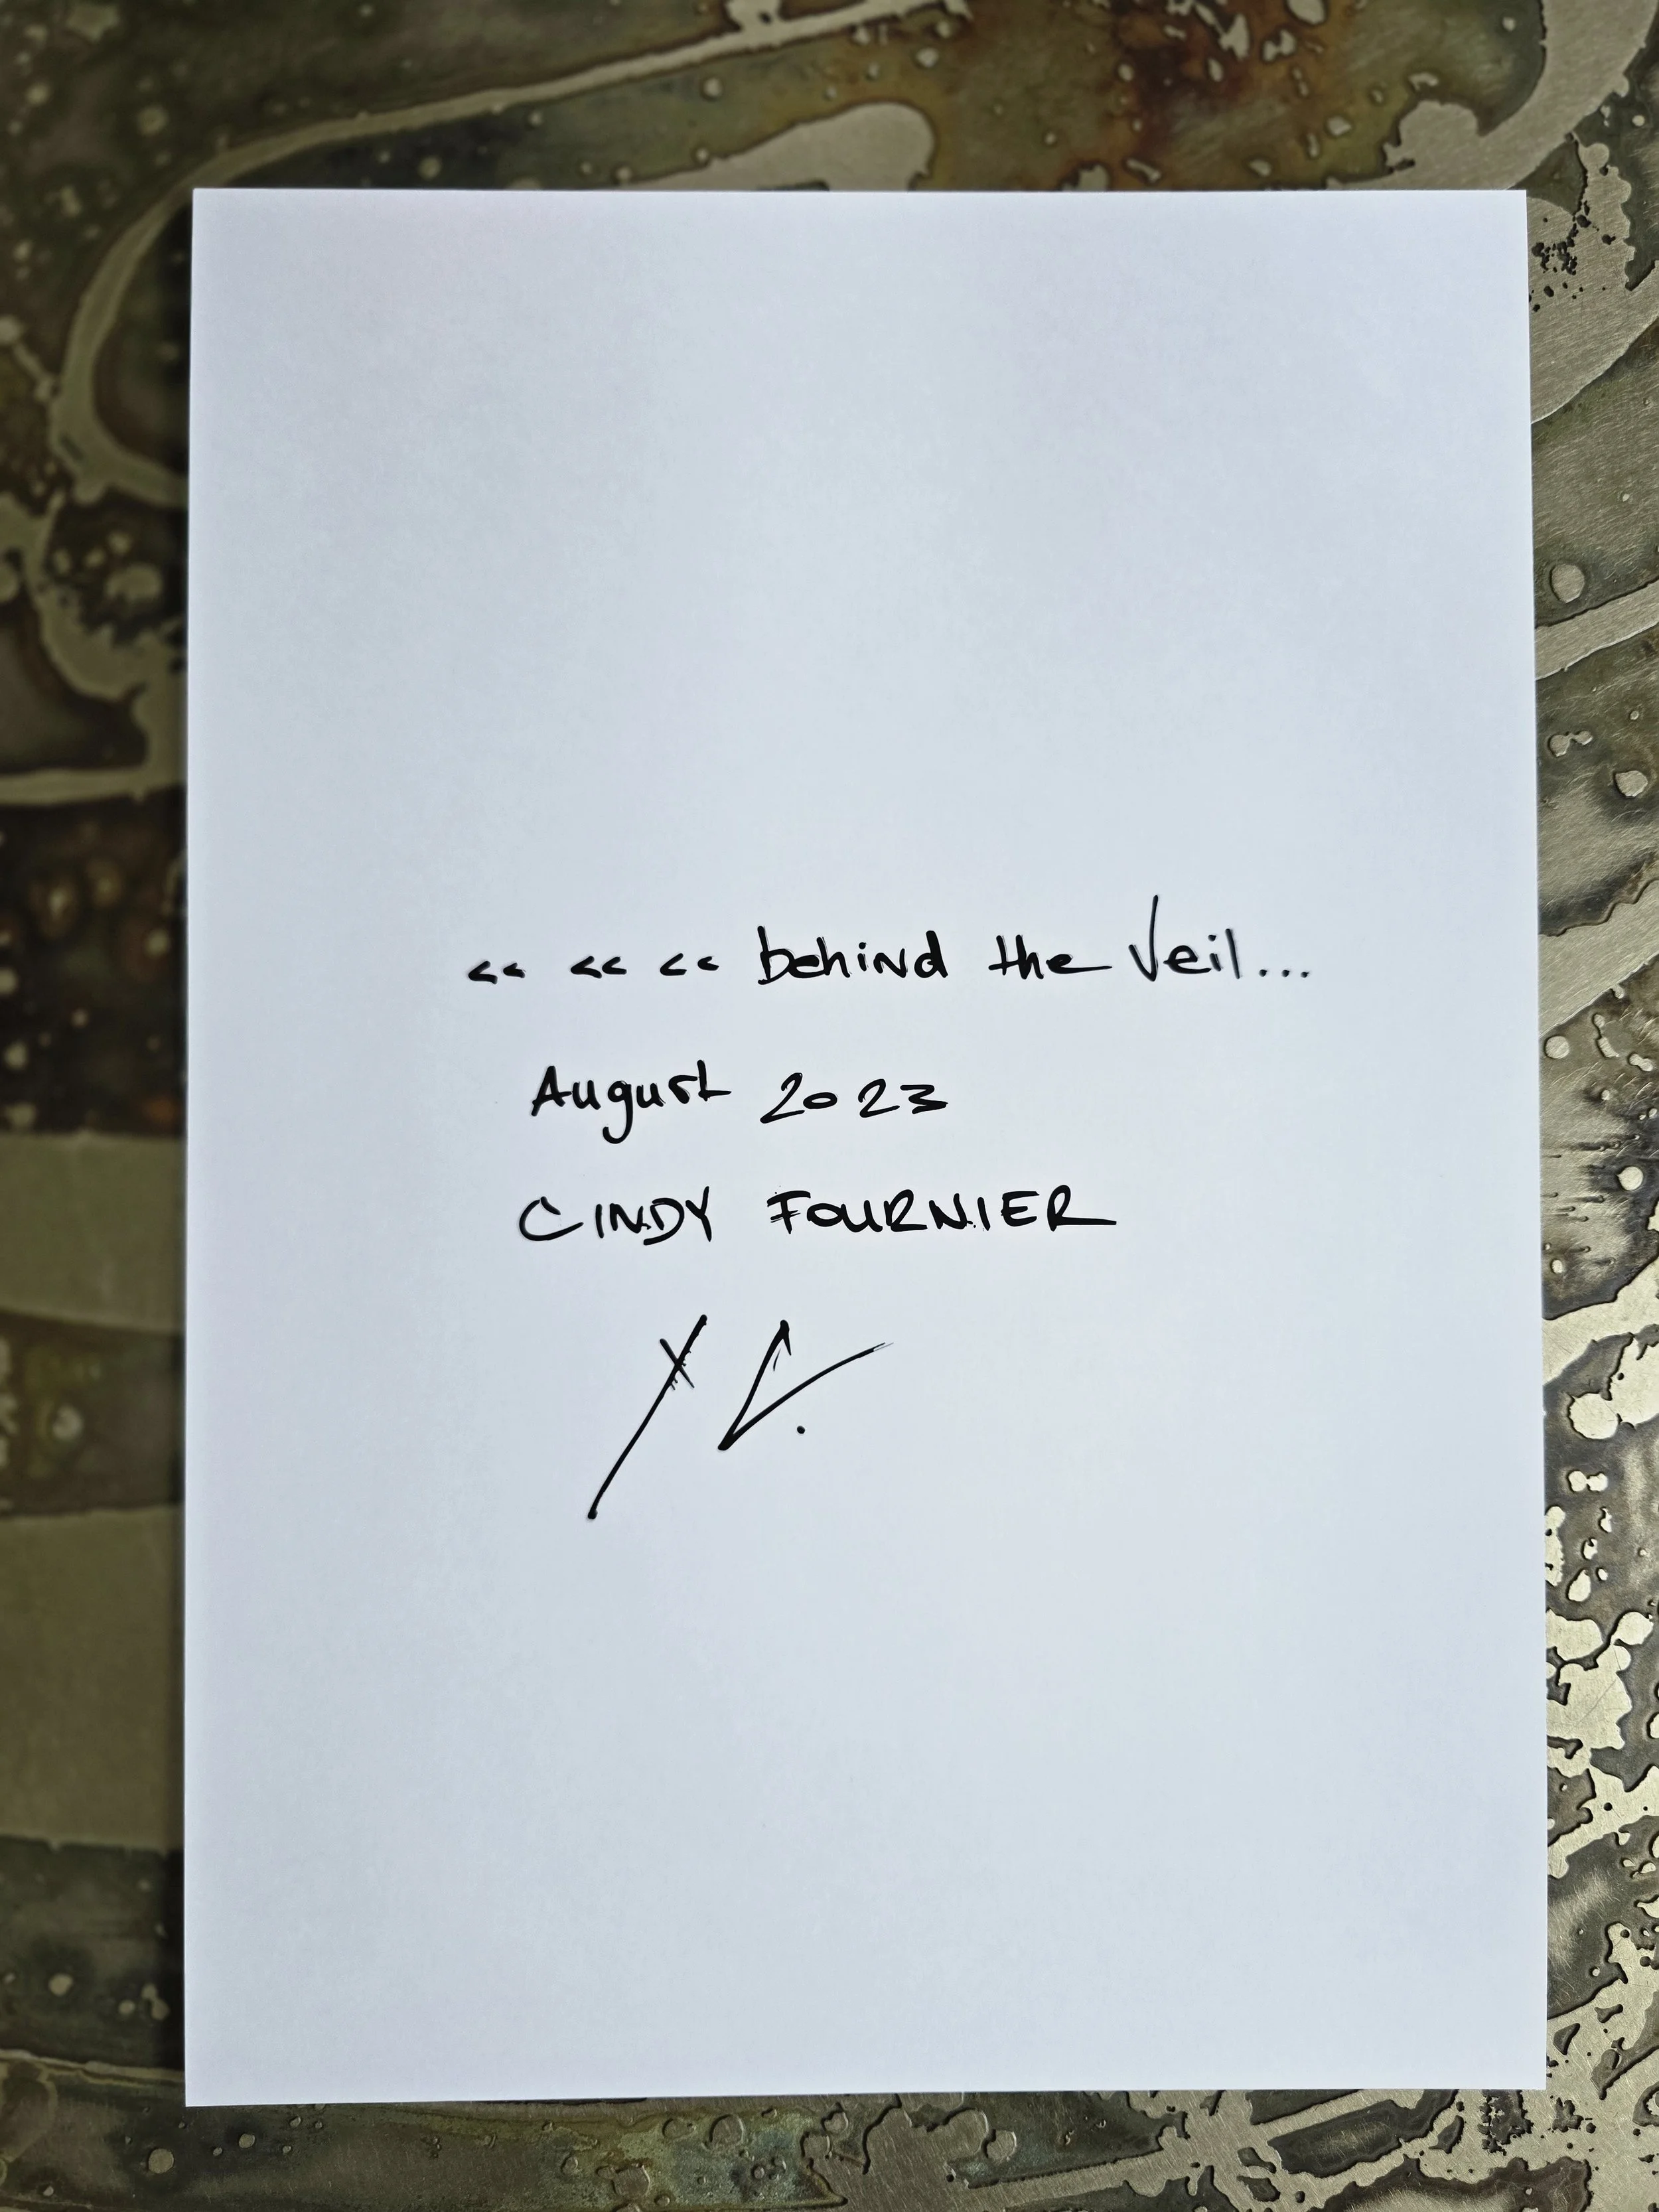 << << << behind the Veil...
August 2023
CINDY FOURNIER